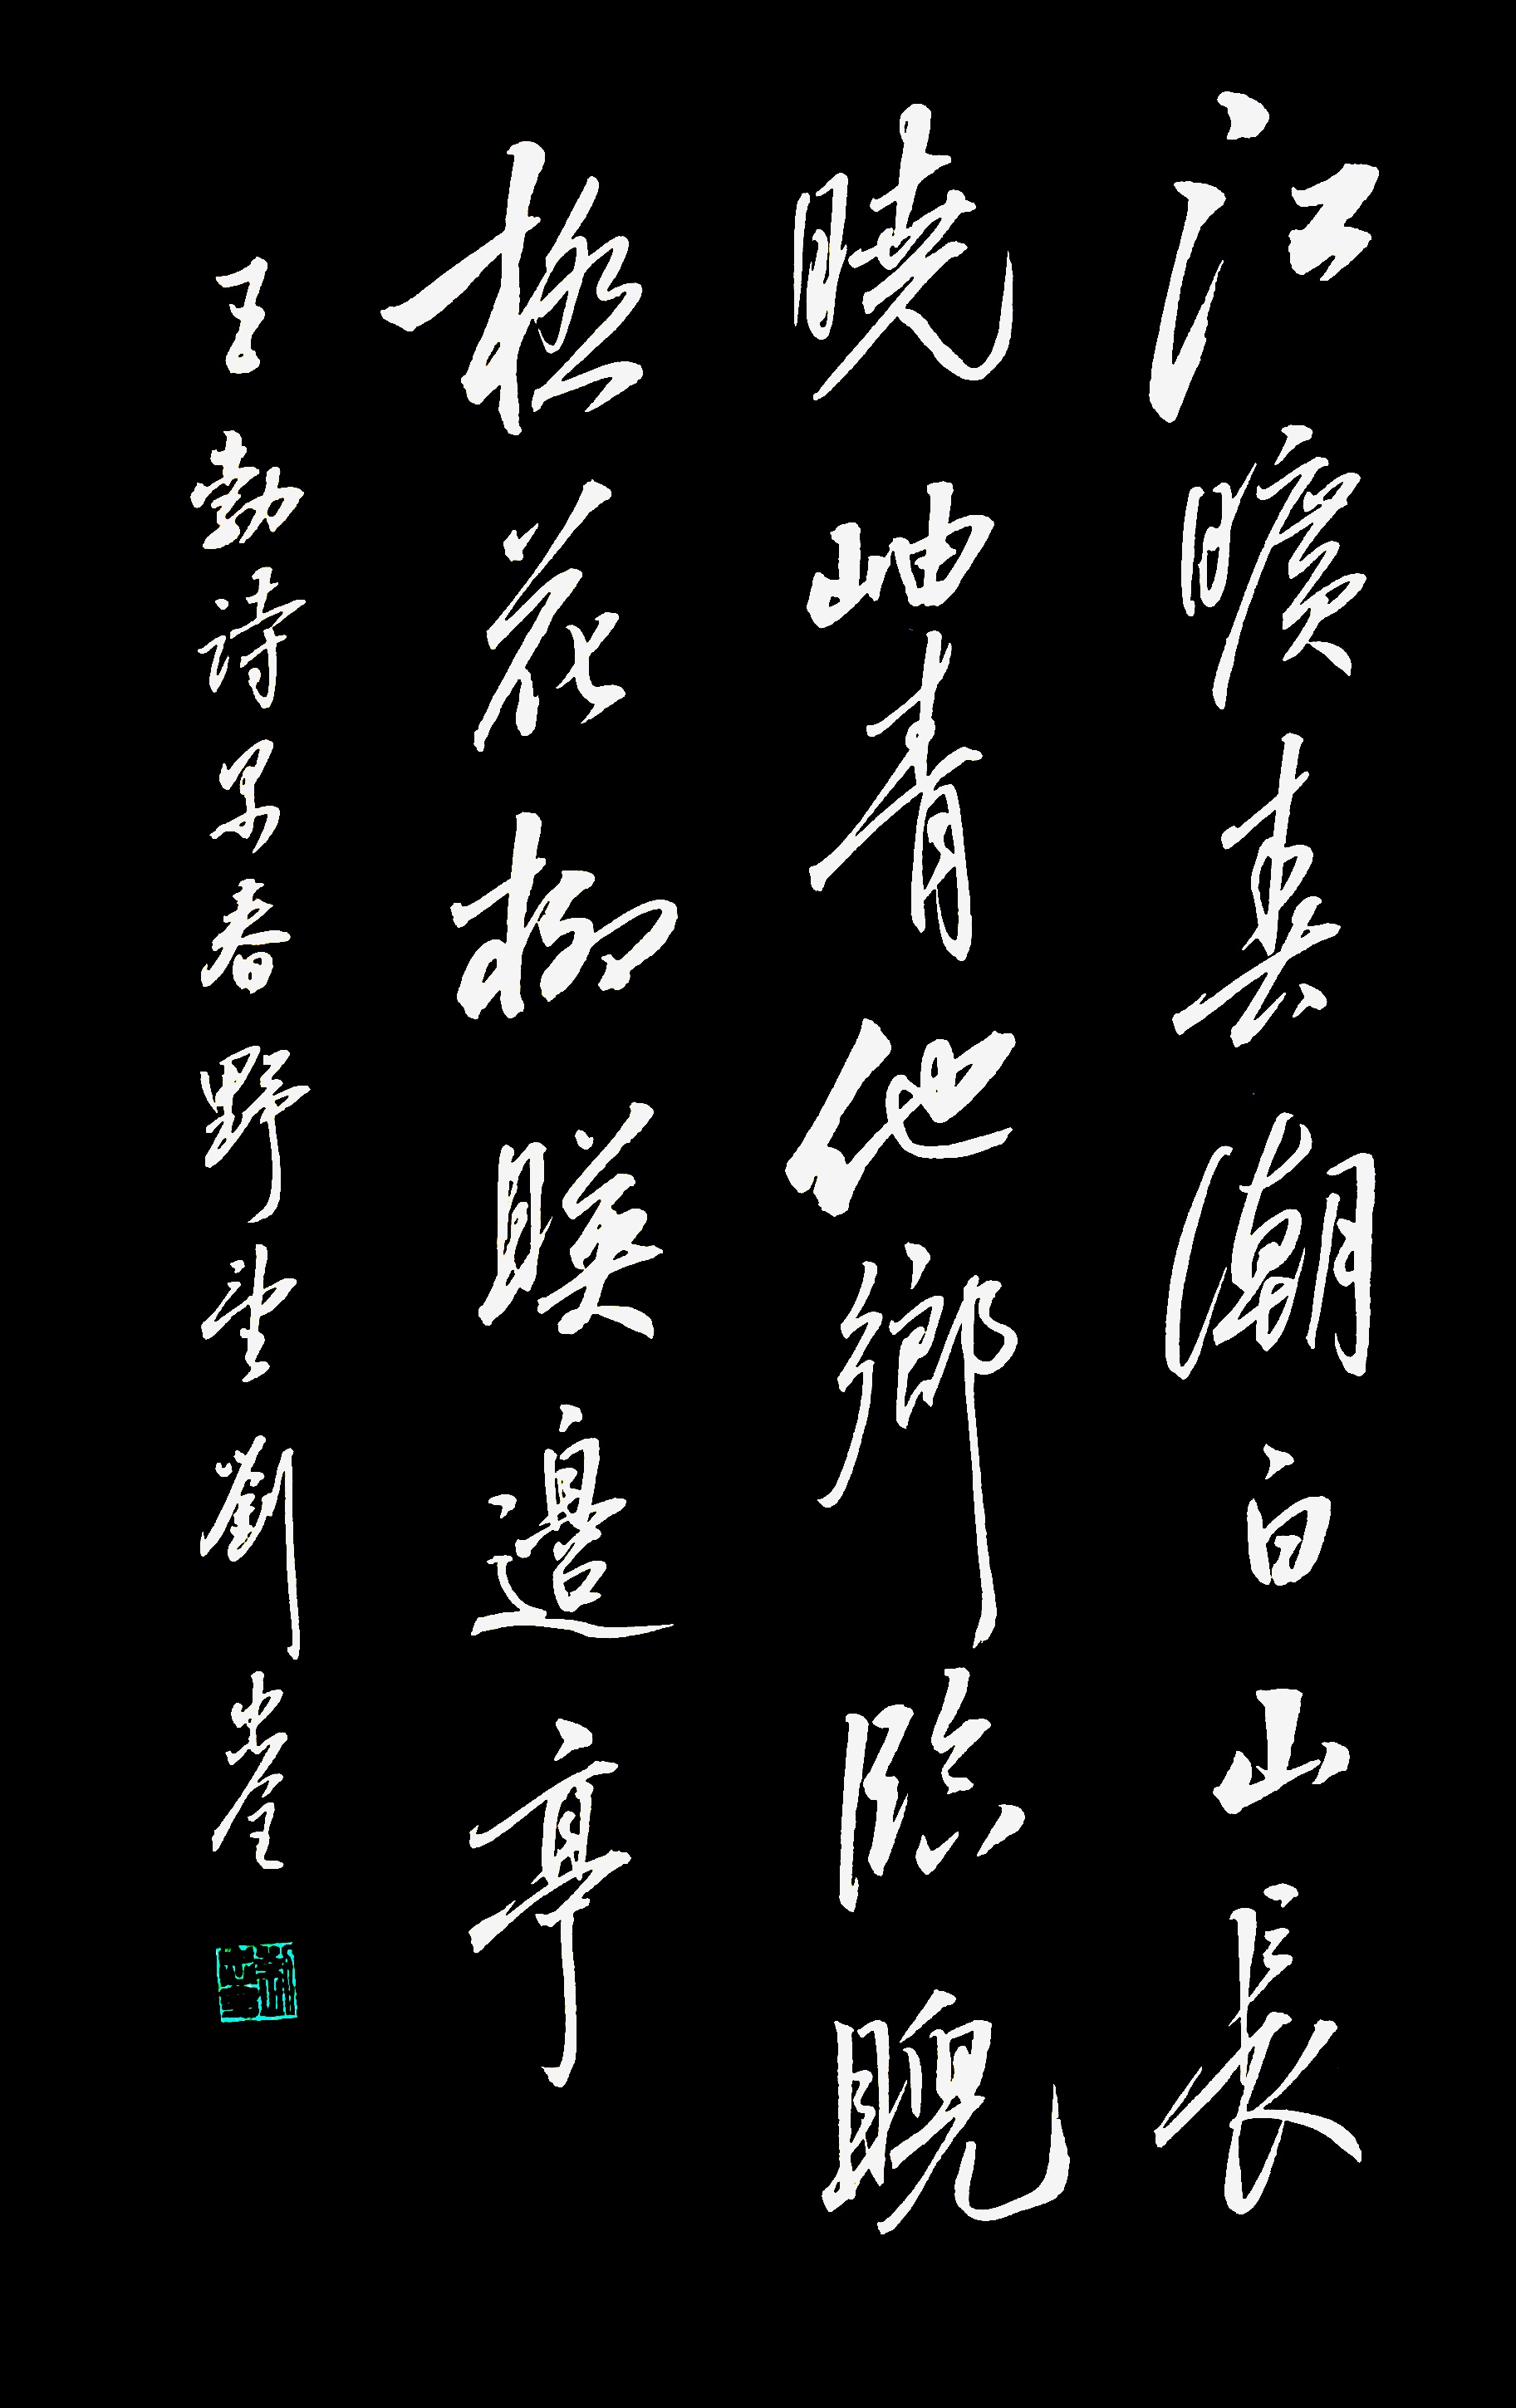 江曠春潮白山長
曉岫青他鄉臨睨
極花柳暎邊亭
王勃詩早春野望劉